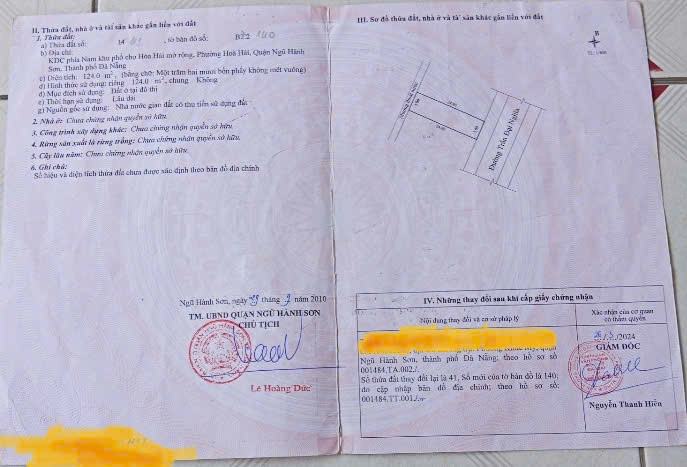 II. Thửa đất, nhà ở và tài sản khác gắn liền với đất
1. Thửa đất:
a) Thửa đất số: 14 41 , tờ bản đồ số: B22 140
b) Địa chỉ:
KDC phía Nam khu phố chợ Hòa Hải mở rộng, Phường Hoà Hải, Quận Ngũ Hành
Sơn, Thành phố Đà Nẵng
c) Diện tích: 124.0 m², (bằng chữ: Một trăm hai mươi bốn phẩy không mét vuông)
d) Hình thức sử dụng: riêng 124.0 m², chung Không
đ) Mục đích sử dụng: Đất ở tại đô thị
e) Thời hạn sử dụng: Lâu dài
g) Nguồn gốc sử dụng: Nhà nước gian đất có thu tiền sử dụng đất
2. Nhà ở: Chưa chứng nhận quyền sở hữu
3. Công trình xây dựng khác: Chưa chứng nhận quyền sở hữu
4. Rừng sản xuất là rừng trồng: Chưa chứng nhận quyền sở hữu.
5. Cây lâu năm: Chưa chứng nhận quyền sở hữu
6. Ghi chú:
Số hiệu và diện tích thửa đất chưa được xác định theo bản đồ địa chính
Ngũ Hành Sơn, ngày tháng 9 năm 2010
TM. UBND QUẬN NGŨ HÀNH SƠN
CHỦ TỊCH
Lê Hoàng Đức
III. Sơ đồ thửa đất, nhà ở và tài sản khác gắn liền với đất
B
Đường Trần Đại Nghĩa
IV. Những thay đổi sau khi cấp giấy chứng nhận
Nội dung thay đổi và cơ sở pháp lý
Xác nhận của cơ quan
có thẩm quyền
Ngũ Hành Sơn, thành phố Đà Nẵng; theo hồ sơ số
001484.TA.002./.
Số thửa đất thay đổi lại là 41, Số mới của tờ bản đồ là 140;
do cập nhập bản đồ địa chính; theo hồ sơ số:
001484.TT.001./.
26/3/2024
GIÁM ĐỐC
Nguyễn Thanh Hiền